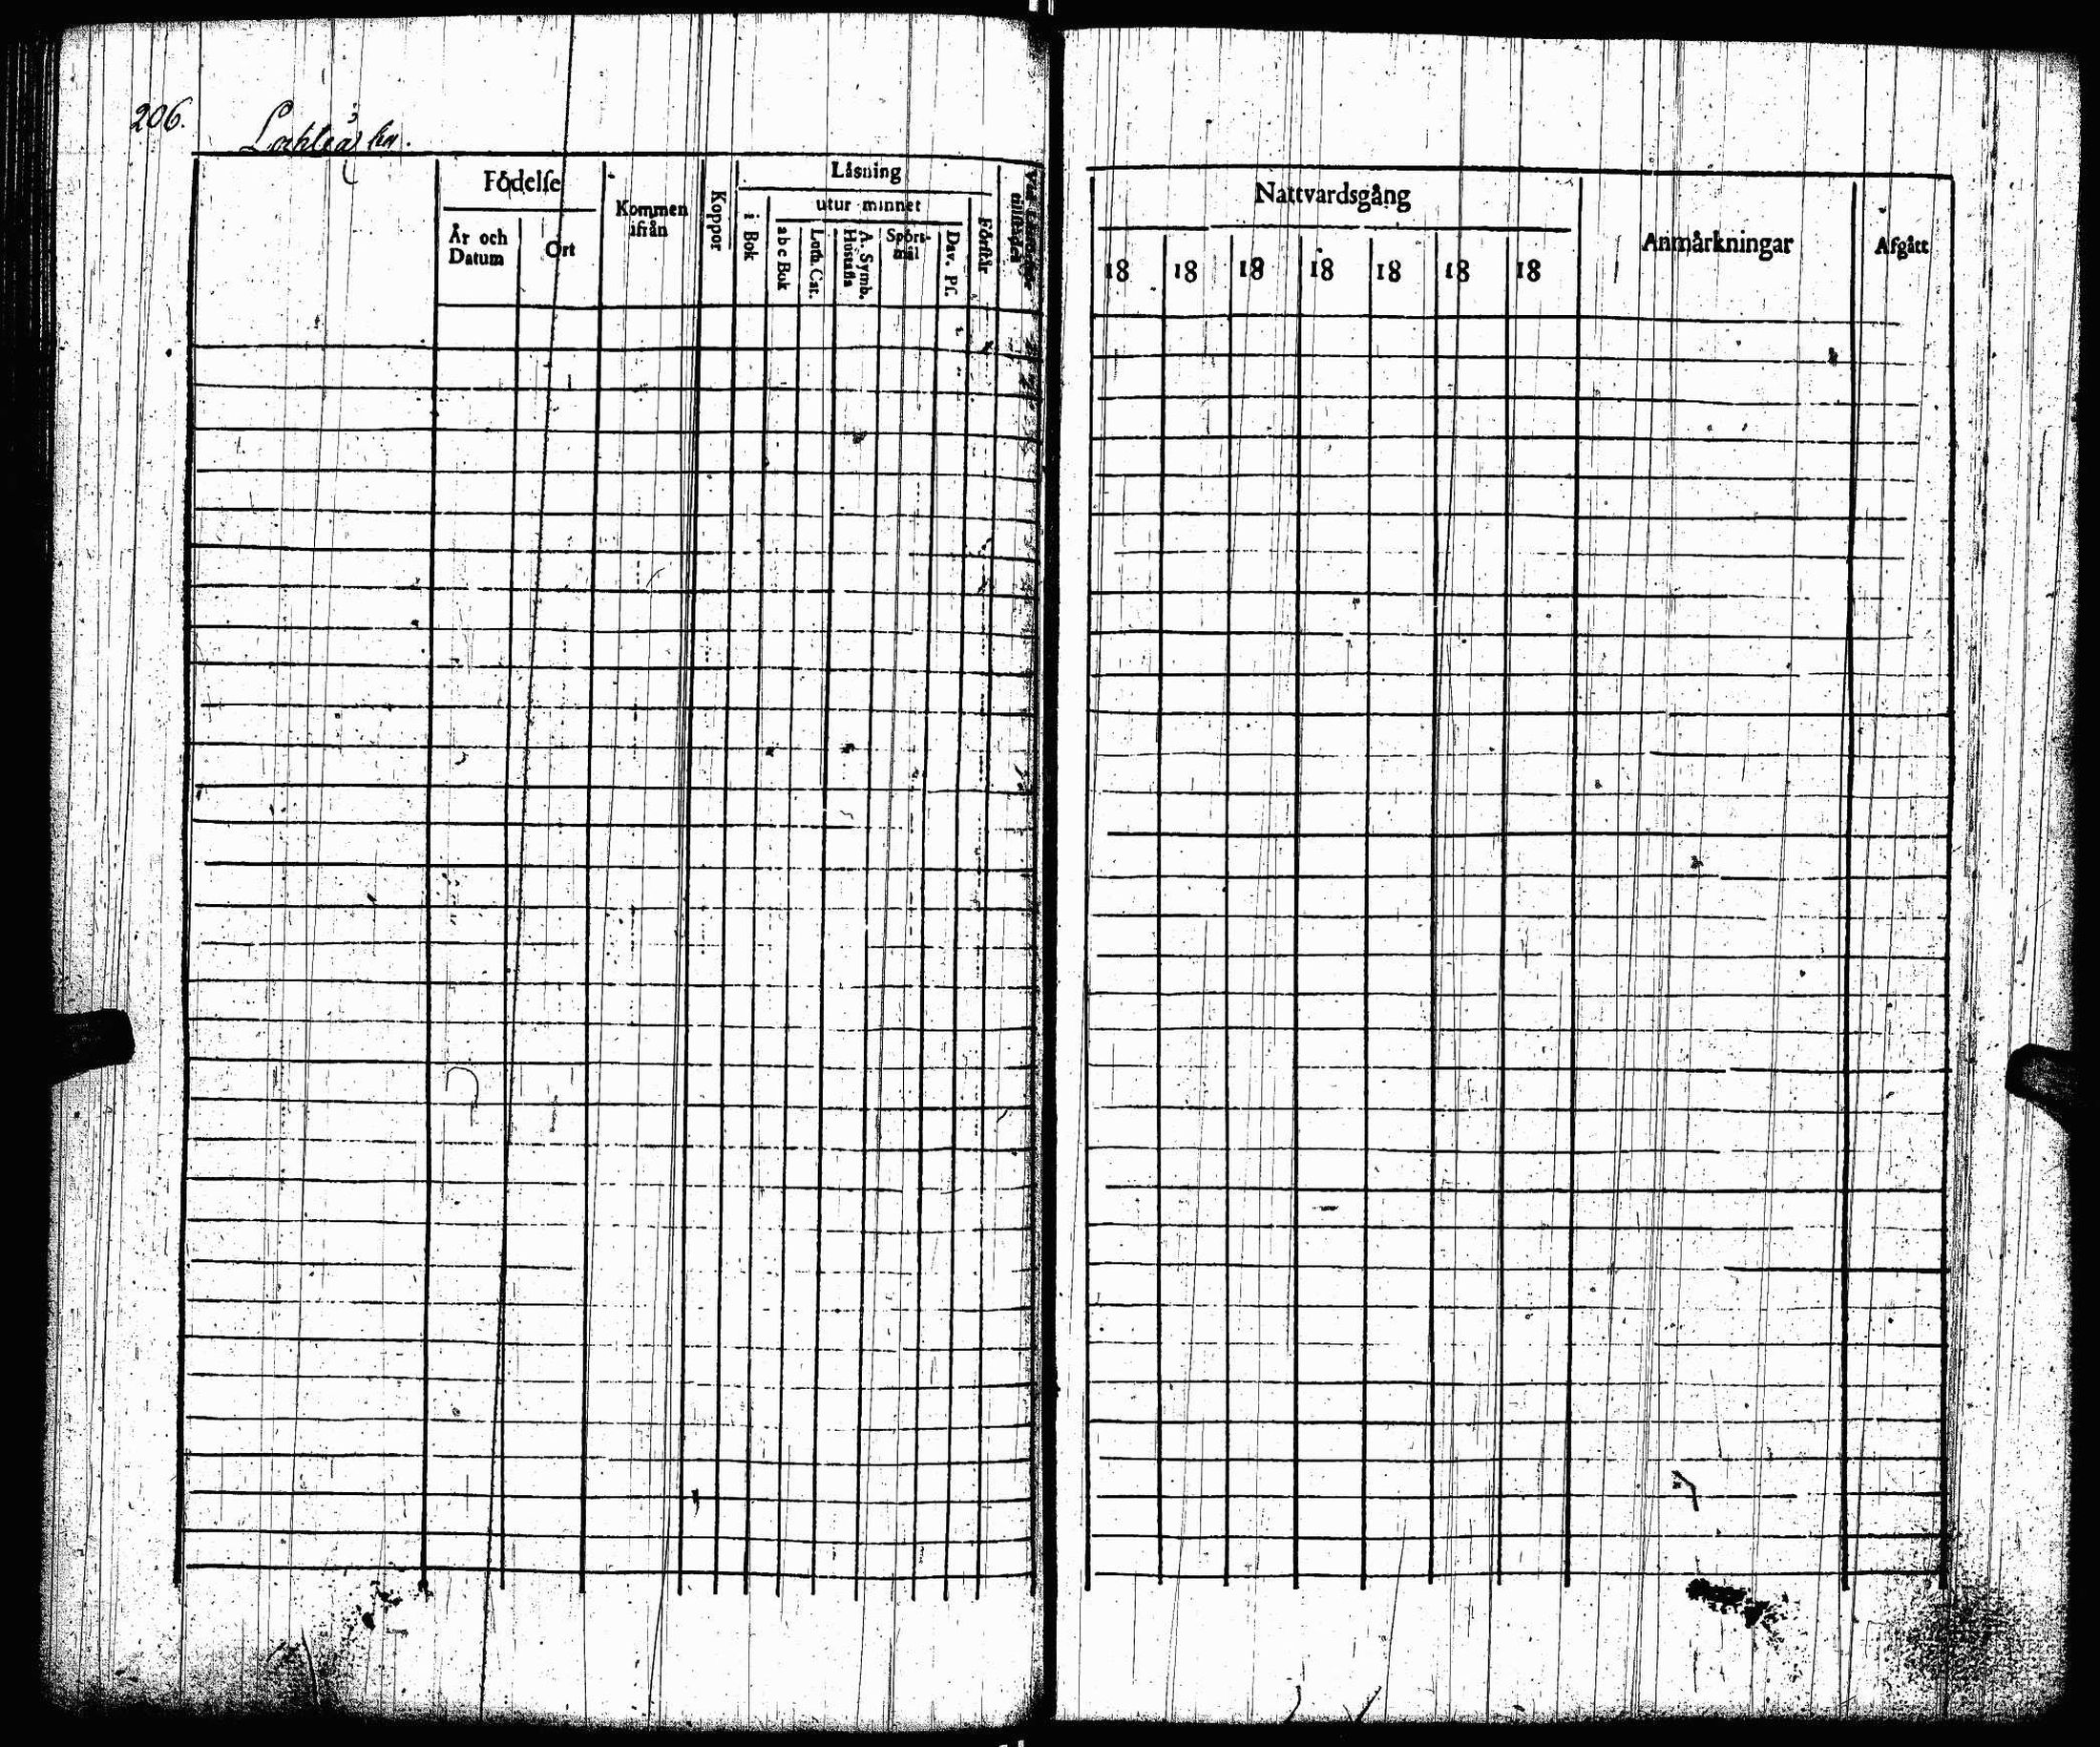 206.
Födelse
År och Datum
Ort
Kommen ifrån
Koppor
Läsning
i Bok
utur minnet
abc Bok
Luth. Cat.
A. Symb. Hustafla
Spörsmål
Dav. Ps.
Förstår
Nattvardsgång
18 18 18 18 18 18 18
Anmärkningar
Afgått